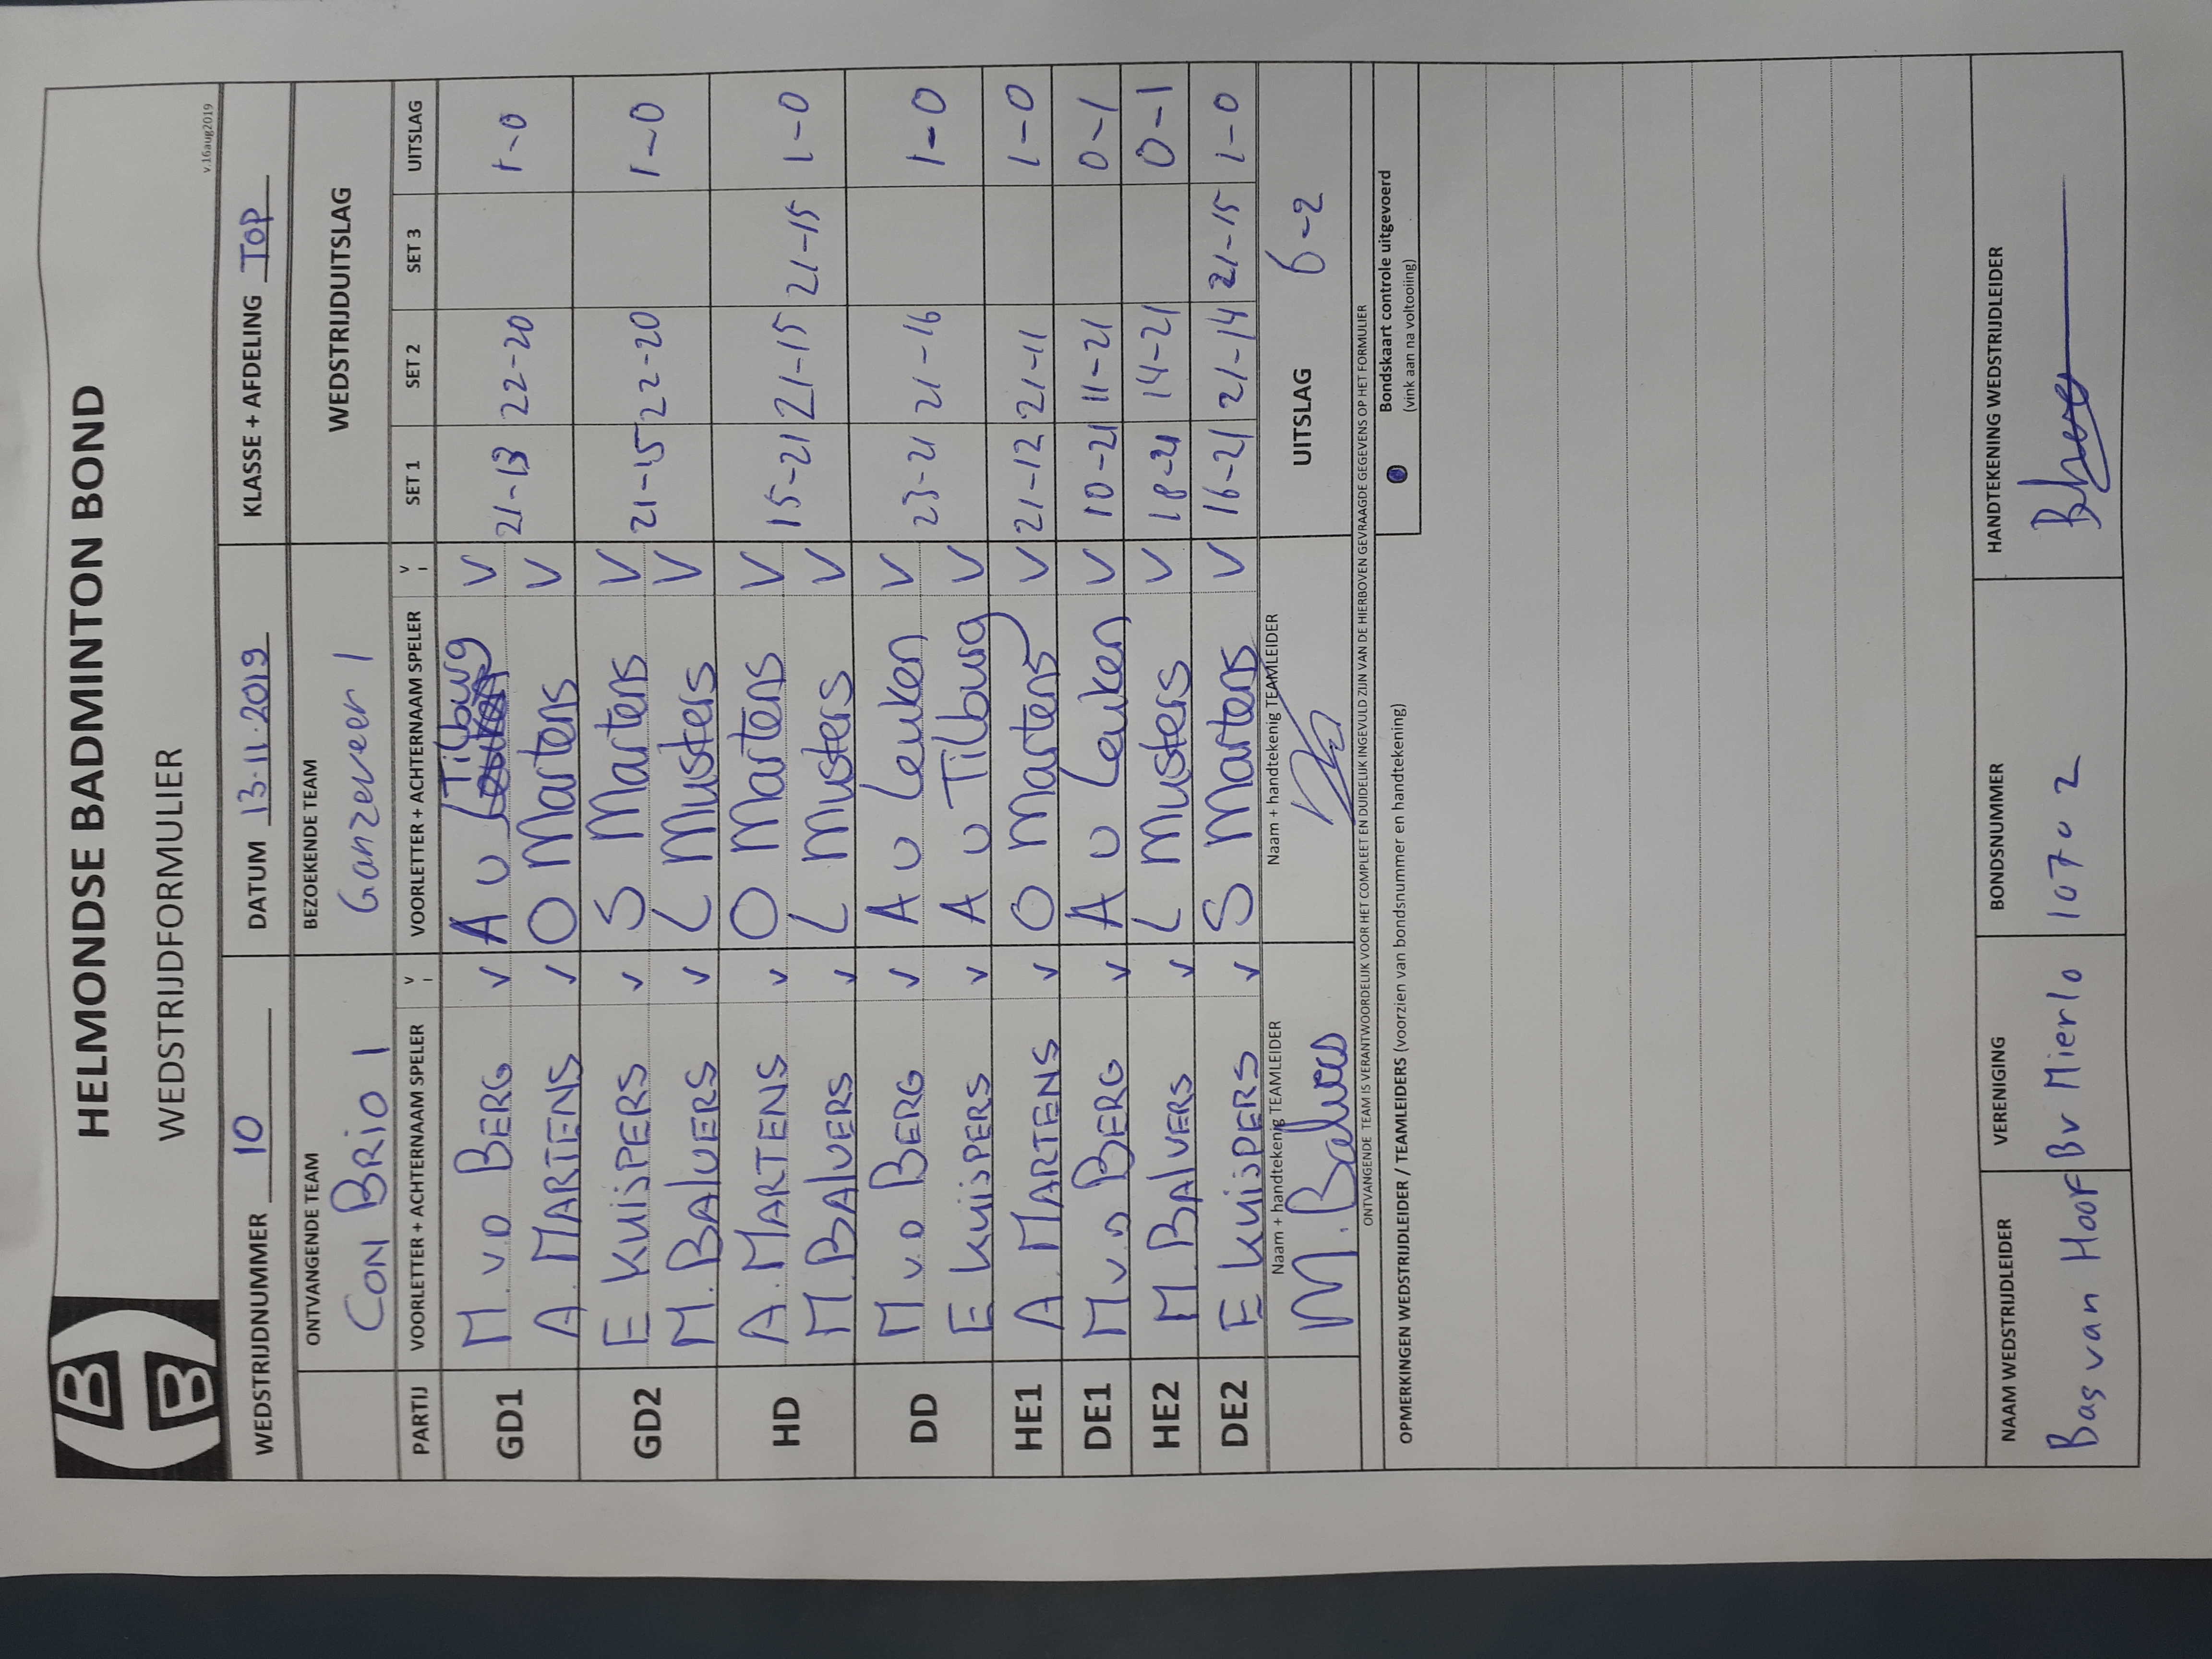 HELMONDSE BADMINTON BOND
WEDSTRIJDFORMULIER
v.16aug2019
WEDSTRIJDNUMMER 10 DATUM 13-11-2019 KLASSE + AFDELING TOP
ONTVANGENDE TEAM BEZOEKENDE TEAM WEDSTRIJDUITSLAG
CON BRIO 1 Ganzeveer 1
PARTIJ VOORLETTER + ACHTERNAAM SPELER V VOORLETTER + ACHTERNAAM SPELER V SET 1 SET 2 SET 3 UITSLAG
GD1 M. v.D BERG v A v Tilburg V 21-13 22-20 1-0
A. MARTENS v O Martens V
GD2 E KUijSPERS v S Martens V 21-15 22-20 1-0
M. BAlVERS v L Musters V
HD A. MARTENS v O Martens V 15-21 21-15 21-15 1-0
M. BAlVERS v L Musters V
DD M v.D BERG v A v Leuken V 23-21 21-16 1-0
E KUijSPERS v A v Tilburg V
HE1 A. MARTENS v O Martens V 21-12 21-11 1-0
DE1 M v.D BERG v A v Leuken V 10-21 11-21 0-1
HE2 M. BAlVERS v L Musters V 18-21 14-21 0-1
DE2 E KUijSPERS v S Martens V 16-21 21-14 21-15 1-0
Naam + handtekenig TEAMLEIDER Naam + handtekenig TEAMLEIDER UITSLAG 6-2
M. Balvers
ONTVANGENDE TEAM IS VERANTWOORDELIJK VOOR HET COMPLEET EN DUIDELIJK INGEVULD ZIJN VAN DE HIERBOVEN GEVRAAGDE GEGEVENS OP HET FORMULIER
OPMERKINGEN WEDSTRIJDLEIDER / TEAMLEIDERS (voorzien van bondsnummer en handtekening)
Bondskaart controle uitgevoerd
(vink aan na voltooiing)
NAAM WEDSTRIJDLEIDER VERENIGING BONDSNUMMER HANDTEKENING WEDSTRIJDLEIDER
Bas van Hoof BV Mierlo 10702